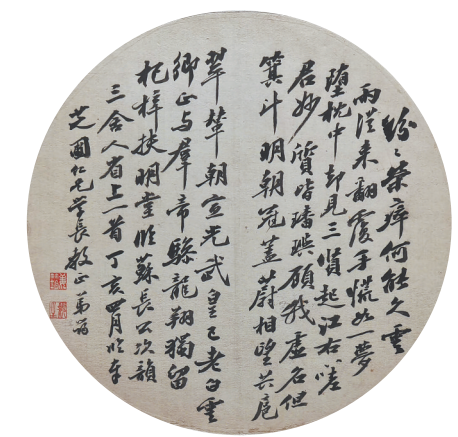 紛〻榮瘁何能久雲
雨從來翻覆手慌如一夢
墮枕中却見三賢起江右嗟
君妙質皆璠璵顧我虛名但
箕斗明朝冠蓋蔚相望共扈
翠輦朝宣光武皇已老白雲
鄉正與羣帝驂龍翔獨留
杞梓扶明堂臨蘇長公次韻
三舍人省上一首丁亥四月臨奉
芝圃仁兄學長教正弟